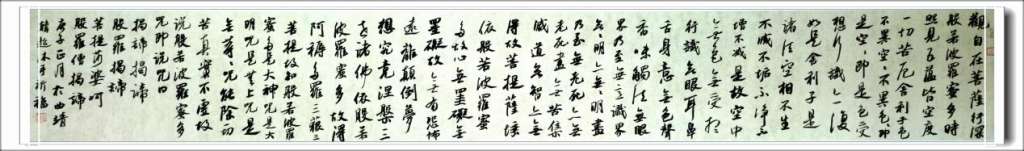 觀自在菩薩行深
般若波羅蜜多時
照見五蘊皆空度
一切苦厄舍利子色
不異空空不異色色即
是空空即是色受
想行識亦復
如是舍利子是
諸法空相不生
不滅不垢不淨不
增不減是故空中
無色無受想
行識無眼耳鼻
舌身意無色聲
香味觸法無眼
界乃至無意識界
無無明亦無無明盡
乃至無老死亦無
老死盡無苦集
滅道無智亦無
得故菩提薩埵
依般若波羅蜜
多故心無罣礙無
罣礙故無有恐怖
遠離顛倒夢
想究竟涅槃三
世諸佛依般若
波羅蜜多故得
阿耨多羅三藐三
菩提故知般若波羅
蜜多是大神咒是大
明咒是無上咒是
無等等咒能除一切
苦真實不虛故
說般若波羅蜜多
咒即說咒曰
揭諦揭諦
般羅揭諦
菩提娑婆呵
般羅僧揭諦
庚子正月於曲靖
祈福